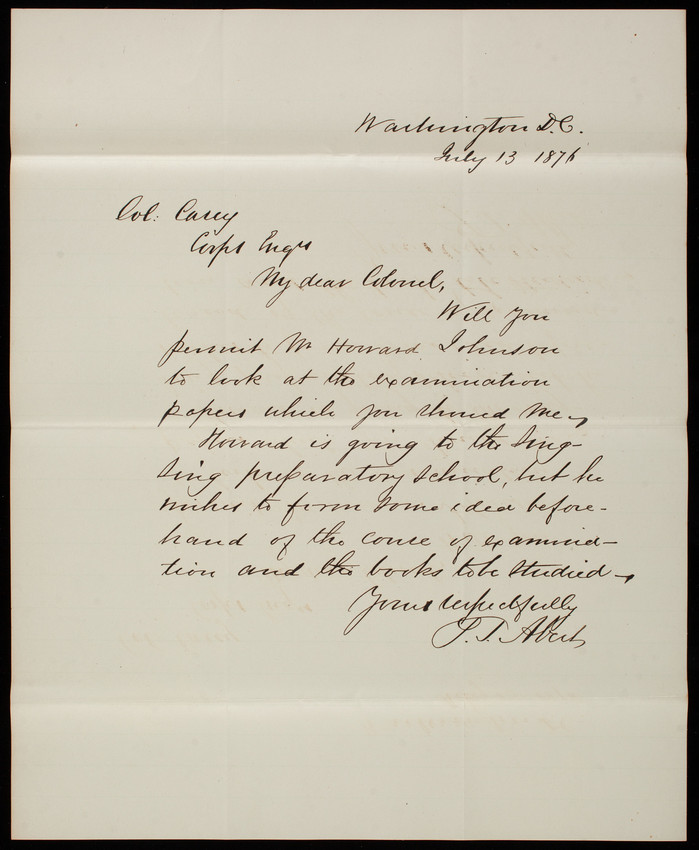 Washington D.C.
July 13 1876
Col: Casey
Corps Engrs
My dear Colonel,
Will you
permit Mr Howard Johnson
to look at the examination
papers which you showed me.
Howard is going to the Sing-
Sing preparatory school, but he
wishes to form some idea before-
hand of the course of examina-
tion and the books to be studied.
Yours respectfully
S.T. Abert